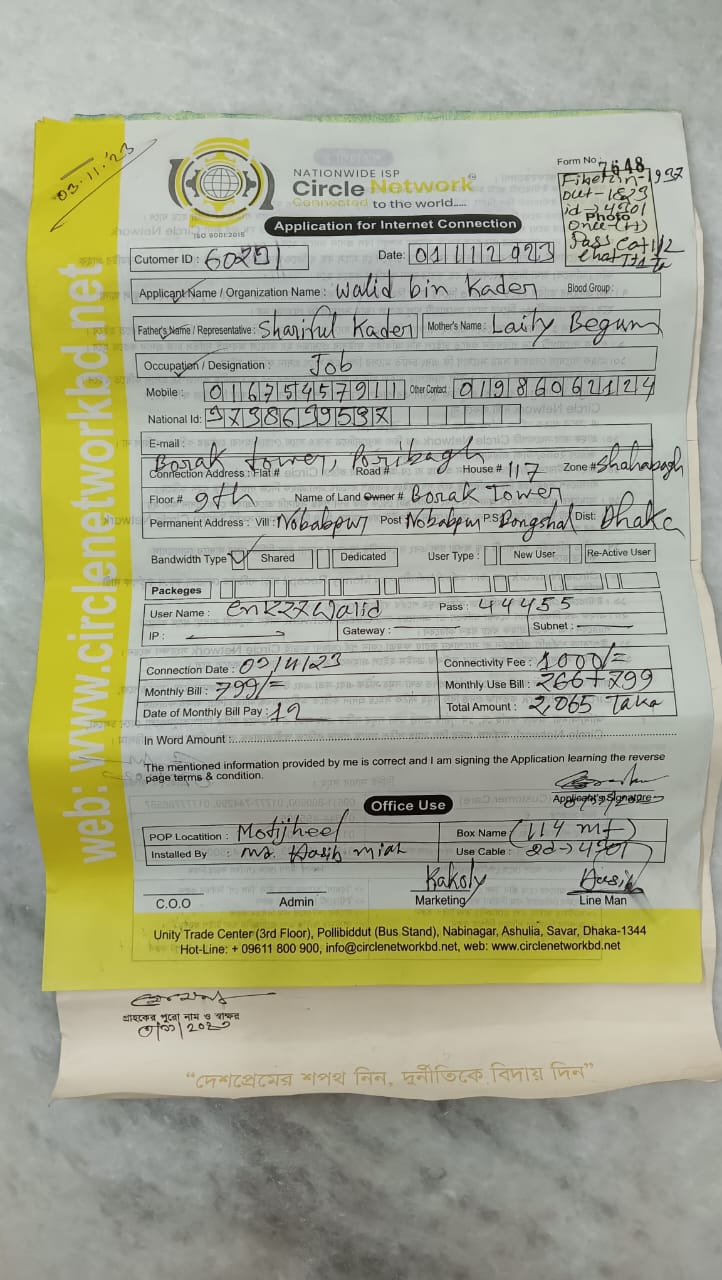 03.11.23
NATIONWIDE ISP
Circle Network
Connected to the world.....
ISO 9001:2015
Application for Internet Connection
Form No 7648
Photo
Cutomer ID :
Date: 01112023
Applicant Name / Organization Name : Walid bin Kader Blood Group :
Father's Name / Representative : Shariful Kader Mother's Name : Laily Begum
Occupation / Designation : Job
Mobile : 01675457911 Other Contact : 01986062124
National Id:
E-mail :
Borak tower, Poribagh
Connection Address : Flat # Road # House # 117 Zone # Shahabagh
Floor # 9th Name of Land Owner # Borak Tower
Permanent Address : Vill : Nobabpur Post Nobabpur P.S Bongshal Dist: Dhaka
Bandwidth Type Shared Dedicated User Type : New User Re-Active User
Packeges
User Name : Pass : 44455
IP : Gateway : Subnet :
Connection Date : Connectivity Fee : 1000/=
Monthly Bill : 799/= Monthly Use Bill : 266+799
Date of Monthly Bill Pay : Total Amount : 2,065 Taka
In Word Amount :
The mentioned information provided by me is correct and I am signing the Application learning the reverse
page terms & condition.
Applicant's Signature
Office Use
POP Locatition : Motijheel Box Name
Installed By : Md. Hasib Miah Use Cable :
Kakoly
C.O.O Admin Marketing Line Man
Unity Trade Center (3rd Floor), Pollibiddut (Bus Stand), Nabinagar, Ashulia, Savar, Dhaka-1344
Hot-Line: + 09611 800 900, info@circlenetworkbd.net, web: www.circlenetworkbd.net
web: www.circlenetworkbd.net
গ্রাহকের পুরো নাম ও স্বাক্ষর
“দেশপ্রেমের শপথ নিন, দুর্নীতিকে বিদায় দিন”